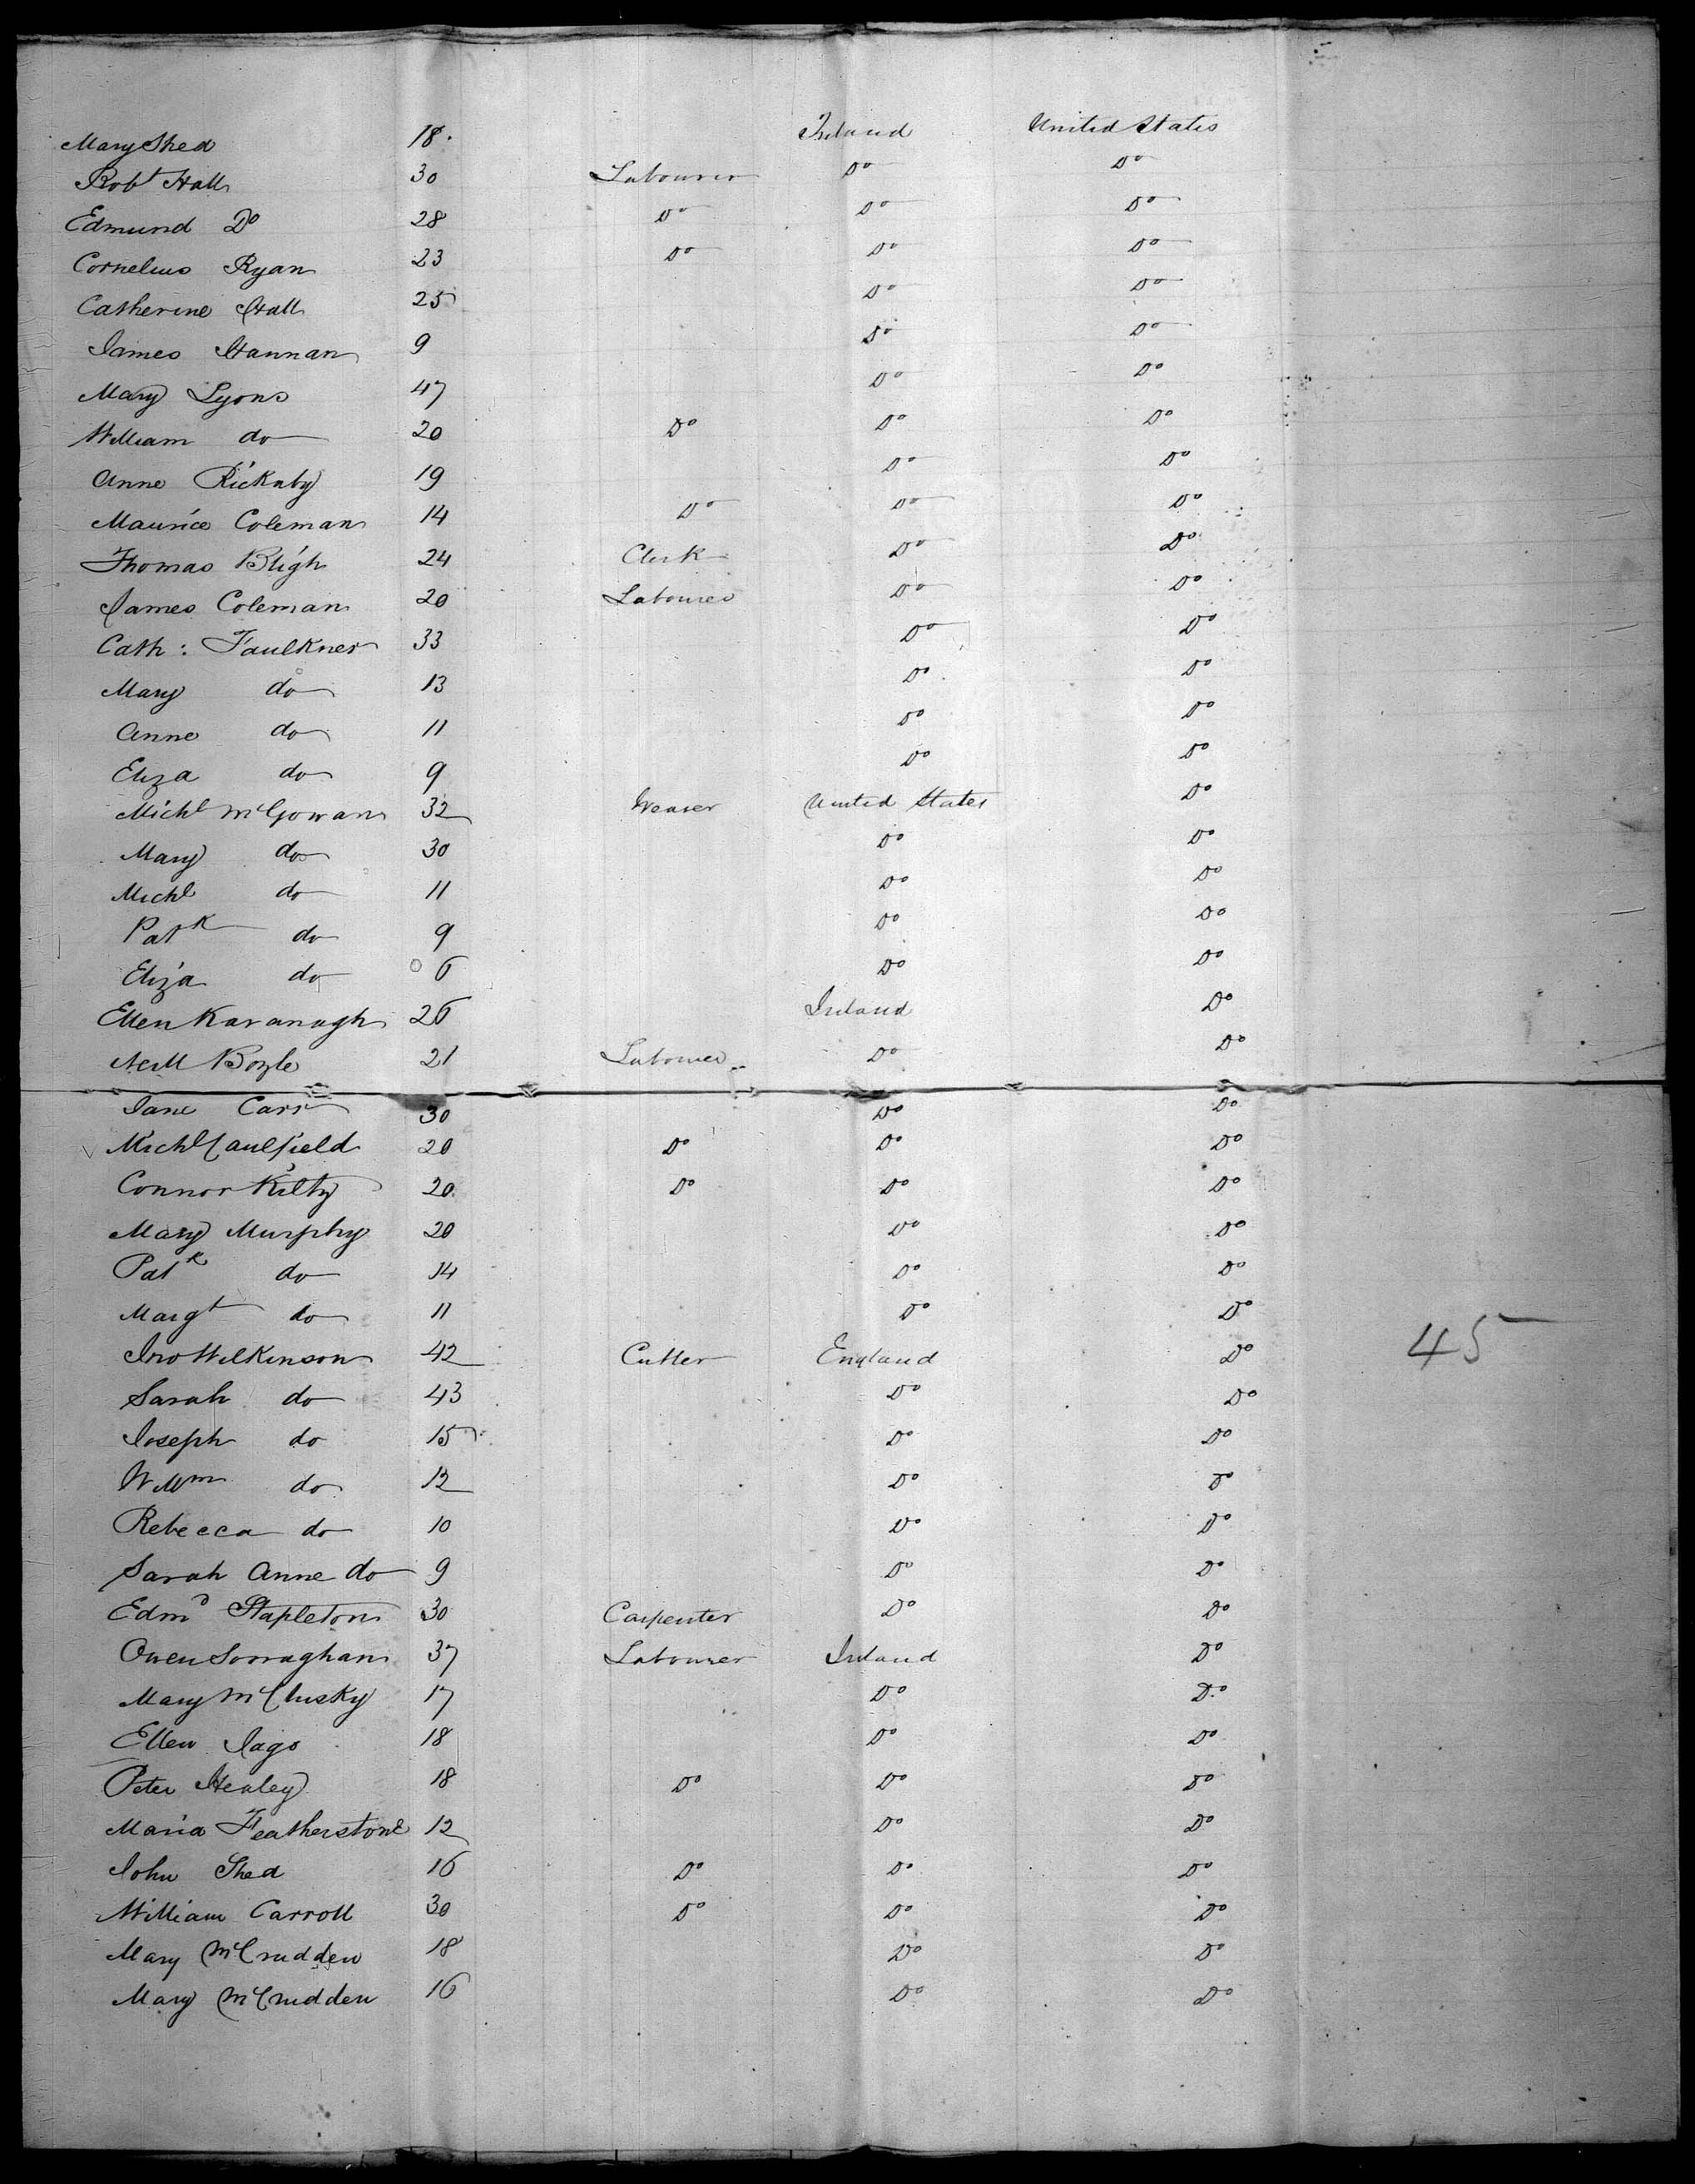 Mary Shea 18. Ireland United States
Robt Hall 30 Labourer Do Do
Edmund Do 28 Do Do Do
Cornelius Ryan 23 Do Do Do
Catherine Hall 25 Do Do
James Hannan 9 Do Do
Mary Lyons 47 Do Do
William do 20 Do Do Do
Anne Rickaby 19 Do Do
Maurice Coleman 14 Do Do Do
Thomas Bligh 24 Clerk Do Do
James Coleman 20 Labourer Do Do
Cath: Faulkner 33 Do Do
Mary do 13 Do Do
Anne do 11 Do Do
Eliza do 9 Do Do
Michl McGowan 32 Weaver United States Do
Mary do 30 Do Do
Michl do 11 Do Do
Patk do 9 Do Do
Eliza do 6 Do Do
Ellen Kavanagh 26 Ireland Do
Neill Boyle 21 Labourer Do Do
Jane Carr 30 Do Do
Michl Caulfield 20 Do Do Do
Connor Kilty 20 Do Do Do
Mary Murphy 20 Do Do
Patk do 14 Do Do
Margt do 11 Do Do
Jno Wilkinson 42 Cutler England Do 45
Sarah do 43 Do Do
Joseph do 15 Do Do
Willm do 12 Do Do
Rebecca do 10 Do Do
Sarah Anne do 9 Do Do
Edmd Stapleton 30 Carpenter Do Do
Owen Sorraghan 37 Labourer Ireland Do
Mary McClusky 17 Do Do
Ellen Jago 18 Do Do
Peter Healey 18 Do Do Do
Maria Featherstone 12 Do Do
John Shea 16 Do Do Do
William Carroll 30 Do Do Do
Mary McCrudden 18 Do Do
Mary McCrudden 16 Do Do